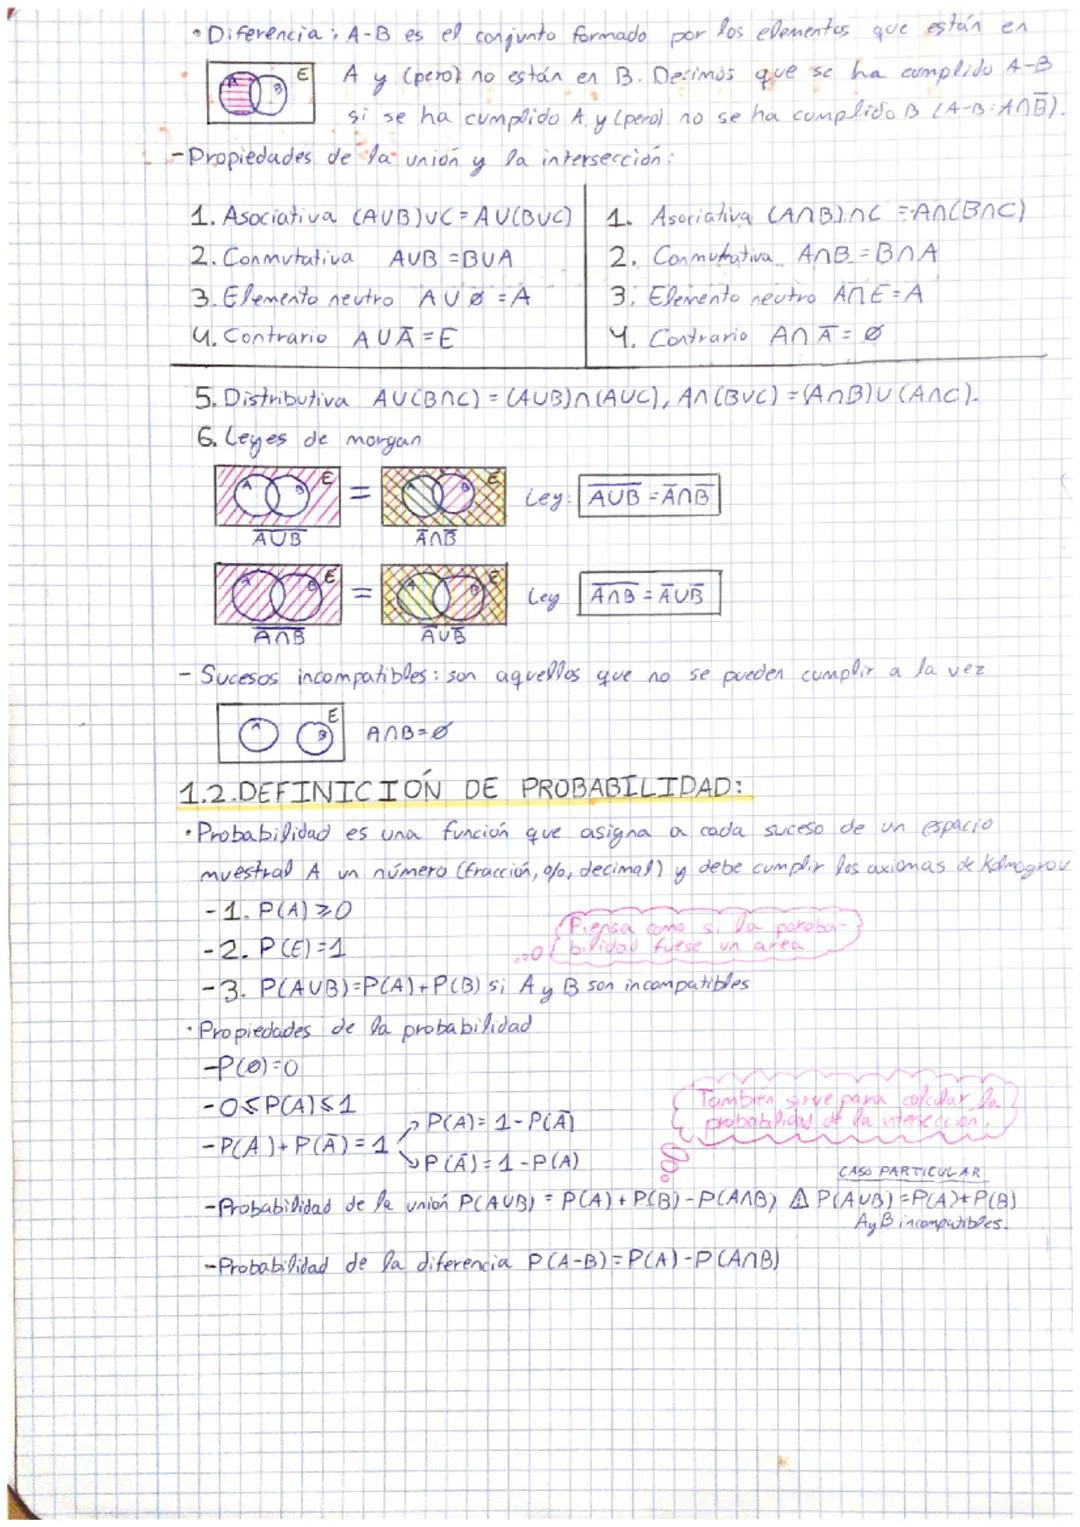 • Diferencia: A-B es el conjunto formado por los elementos que están en
A B E
A y (pero) no están en B. Decimos que se ha cumplido A-B
si se ha cumplido A y (pero) no se ha cumplido B (A-B=A∩B̅).
- Propiedades de la unión y la intersección:
1. Asociativa (A∪B)∪C=A∪(B∪C)
2. Conmutativa A∪B=B∪A
3. Elemento neutro A∪Ø=A
4. Contrario A∪A̅=E
1. Asociativa (A∩B)∩C=A∩(B∩C)
2. Conmutativa A∩B=B∩A
3. Elemento neutro A∩E=A
4. Contrario A∩A̅=Ø
5. Distributiva A∪(B∩C)=(A∪B)∩(A∪C), A∩(B∪C)=(A∩B)∪(A∩C).
6. Leyes de morgan
A B E = A B E Ley: A̅∪̅B̅=A̅∩B̅
A̅∪̅B̅ A̅∩B̅
A B E = A B E Ley A̅∩̅B̅=A̅∪B̅
A̅∩̅B̅ A̅∪B̅
- Sucesos incompatibles: son aquellos que no se pueden cumplir a la vez
A B E A∩B=Ø
1.2.DEFINICIÓN DE PROBABILIDAD:
• Probabilidad es una función que asigna a cada suceso de un espacio
muestral A un número (fracción, %, decimal) y debe cumplir los axiomas de Kolmogrov
-1. P(A)≥0
-2. P(E)=1
Piensa como si la poroba-
bilidad fuese un area
-3. P(A∪B)=P(A)+P(B) si A y B son incompatibles
• Propiedades de la probabilidad
-P(Ø)=0
-0≤P(A)≤1
También sirve para calcular la
probabilidad de la intersección.
-P(A)+P(A̅)=1
P(A)=1-P(A̅)
P(A̅)=1-P(A)
CASO PARTICULAR
-Probabilidad de la unión P(A∪B)=P(A)+P(B)-P(A∩B) ⚠ P(A∪B)=P(A)+P(B)
A y B incompatibles.
-Probabilidad de la diferencia P(A-B)=P(A)-P(A∩B)